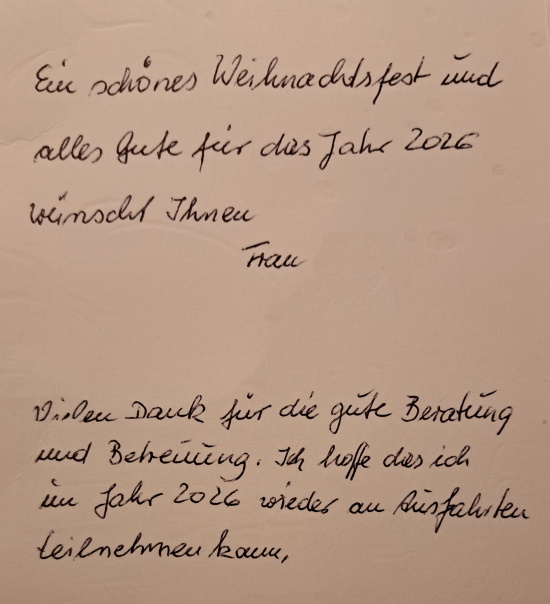 Ein schönes Weihnachtsfest und
alles Gute für das Jahr 2026
wünscht Ihnen
Frau
Vielen Dank für die gute Beratung
und Betreuung. Ich hoffe das ich
im Jahr 2026 wieder an Ausfahrten
teilnehmen kann,